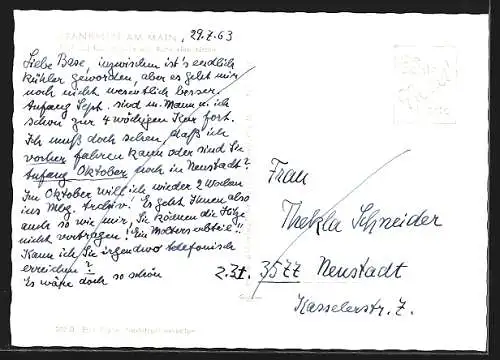 FRANKFURT AM MAIN
29.7.63
Liebe Base, inzwischen ist's endlich
kühler geworden, aber es geht mir
noch nicht wesentlich besser.
Anfang Sept. sind m. Mann u. ich
schon zur 4 wöchigen Kur fort.
Ich muß doch sehen, daß ich
vorher fahren kann oder sind Sie
Anfang Oktober noch in Neustadt?
Im Oktober will ich wieder 2 Wochen
ins Mbg. Archiv! Es geht Ihnen also
auch so wie mir, Sie können die Hitze
nicht vertragen! Ein
Kann ich Sie irgendwo telefonisch
erreichen?
Es wäre doch so schön
Frau
Thekla Schneider
3577 Neustadt
Kasselerstr. 7.